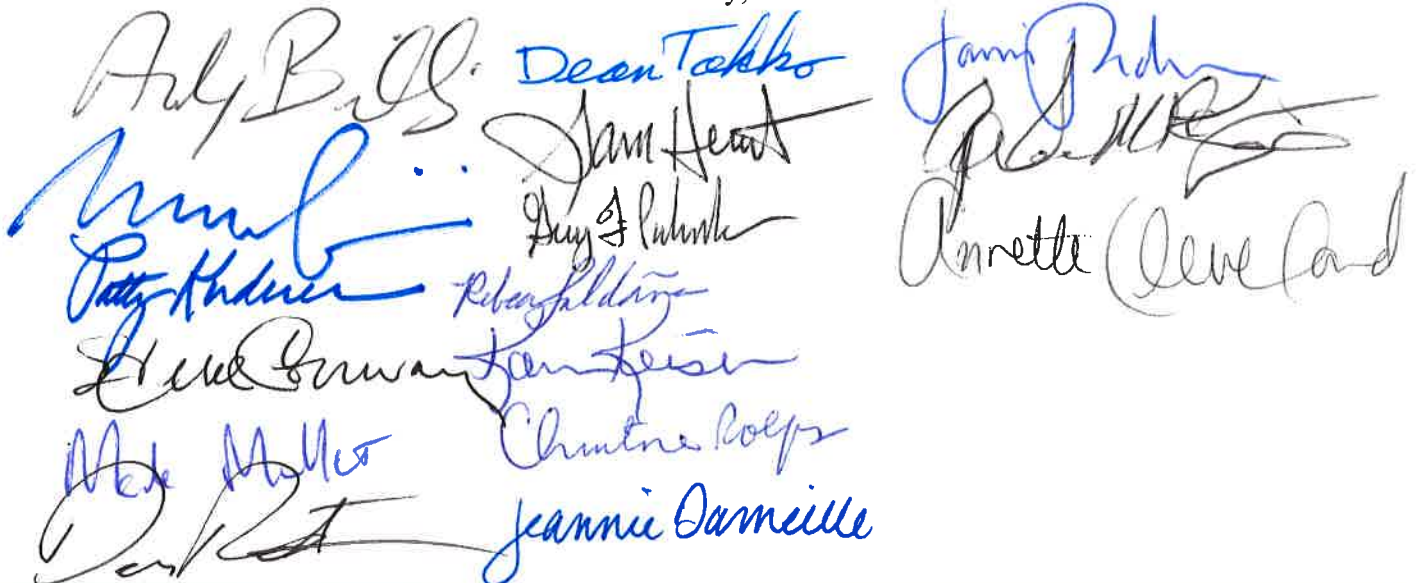 Andy Billig
Patty Kuderer
Steve Conway
Mark Mullet
Dean Takko
Sam Hunt
Guy F Palumbo
Rebecca Saldaña
Karen Keiser
Christine Rolfes
Jeannie Darneille
Jamie Pedersen
Annette Cleveland